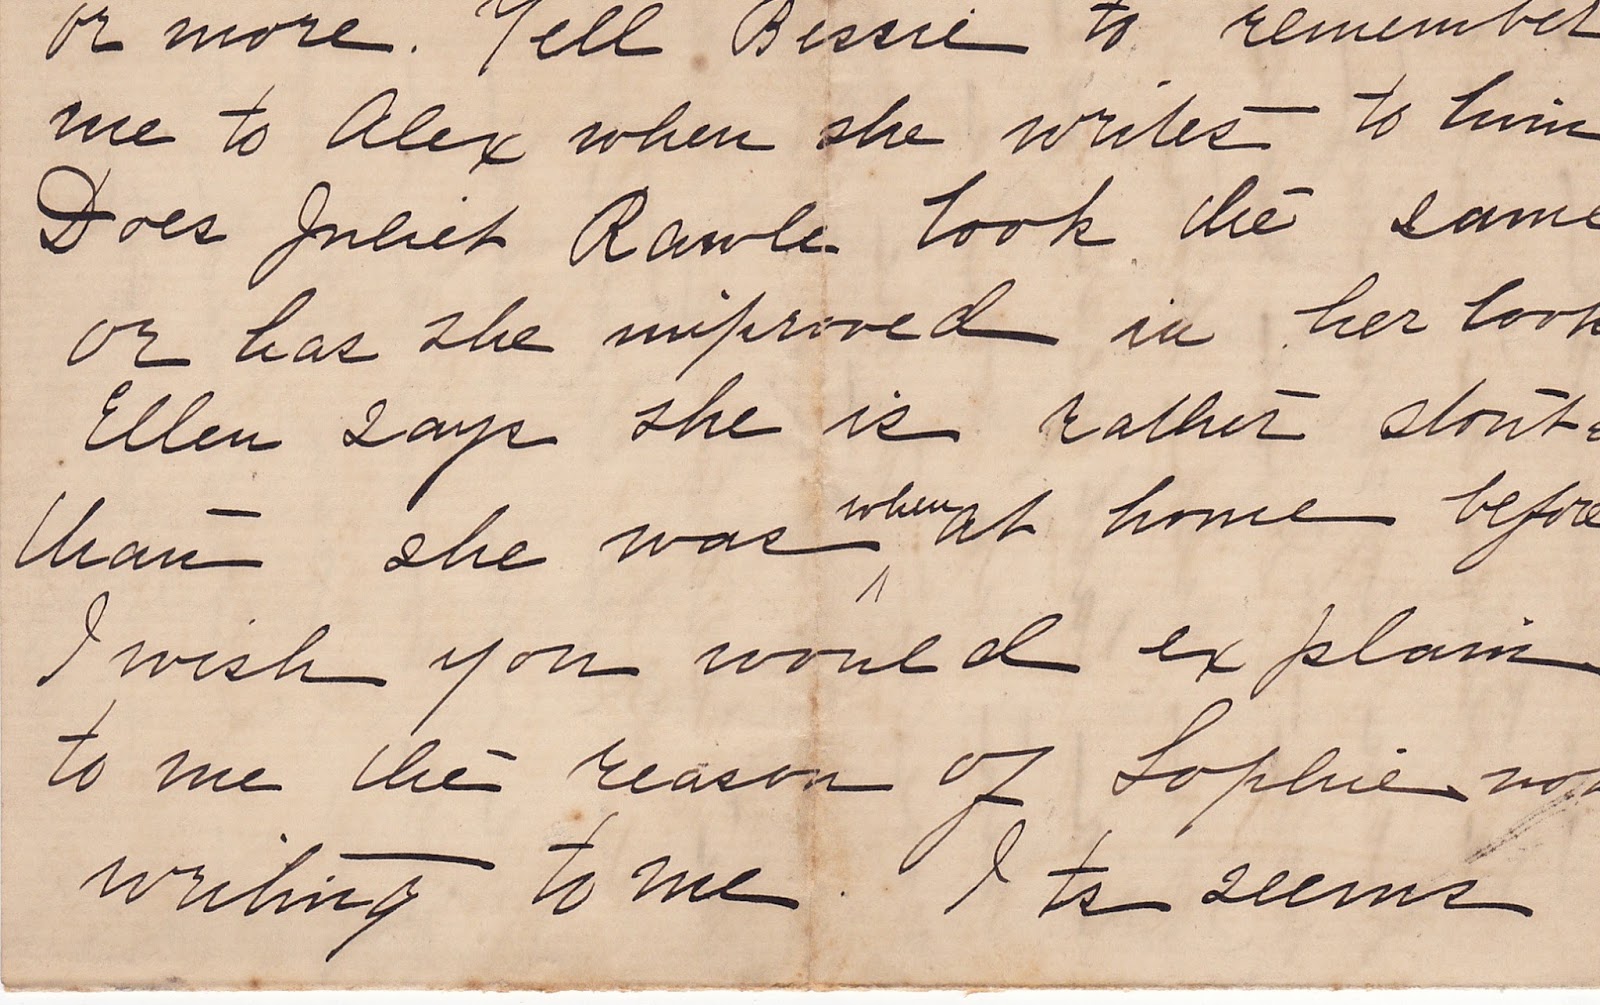 or more. Tell Bessie to remember
me to Alex when she writes to him
Does Juliet Rawle look the same
or has she improved in her look
Ellen says she is rather stout
than she was when at home before
I wish you would explain
to me the reason of Sophie not
writing to me. Its seems